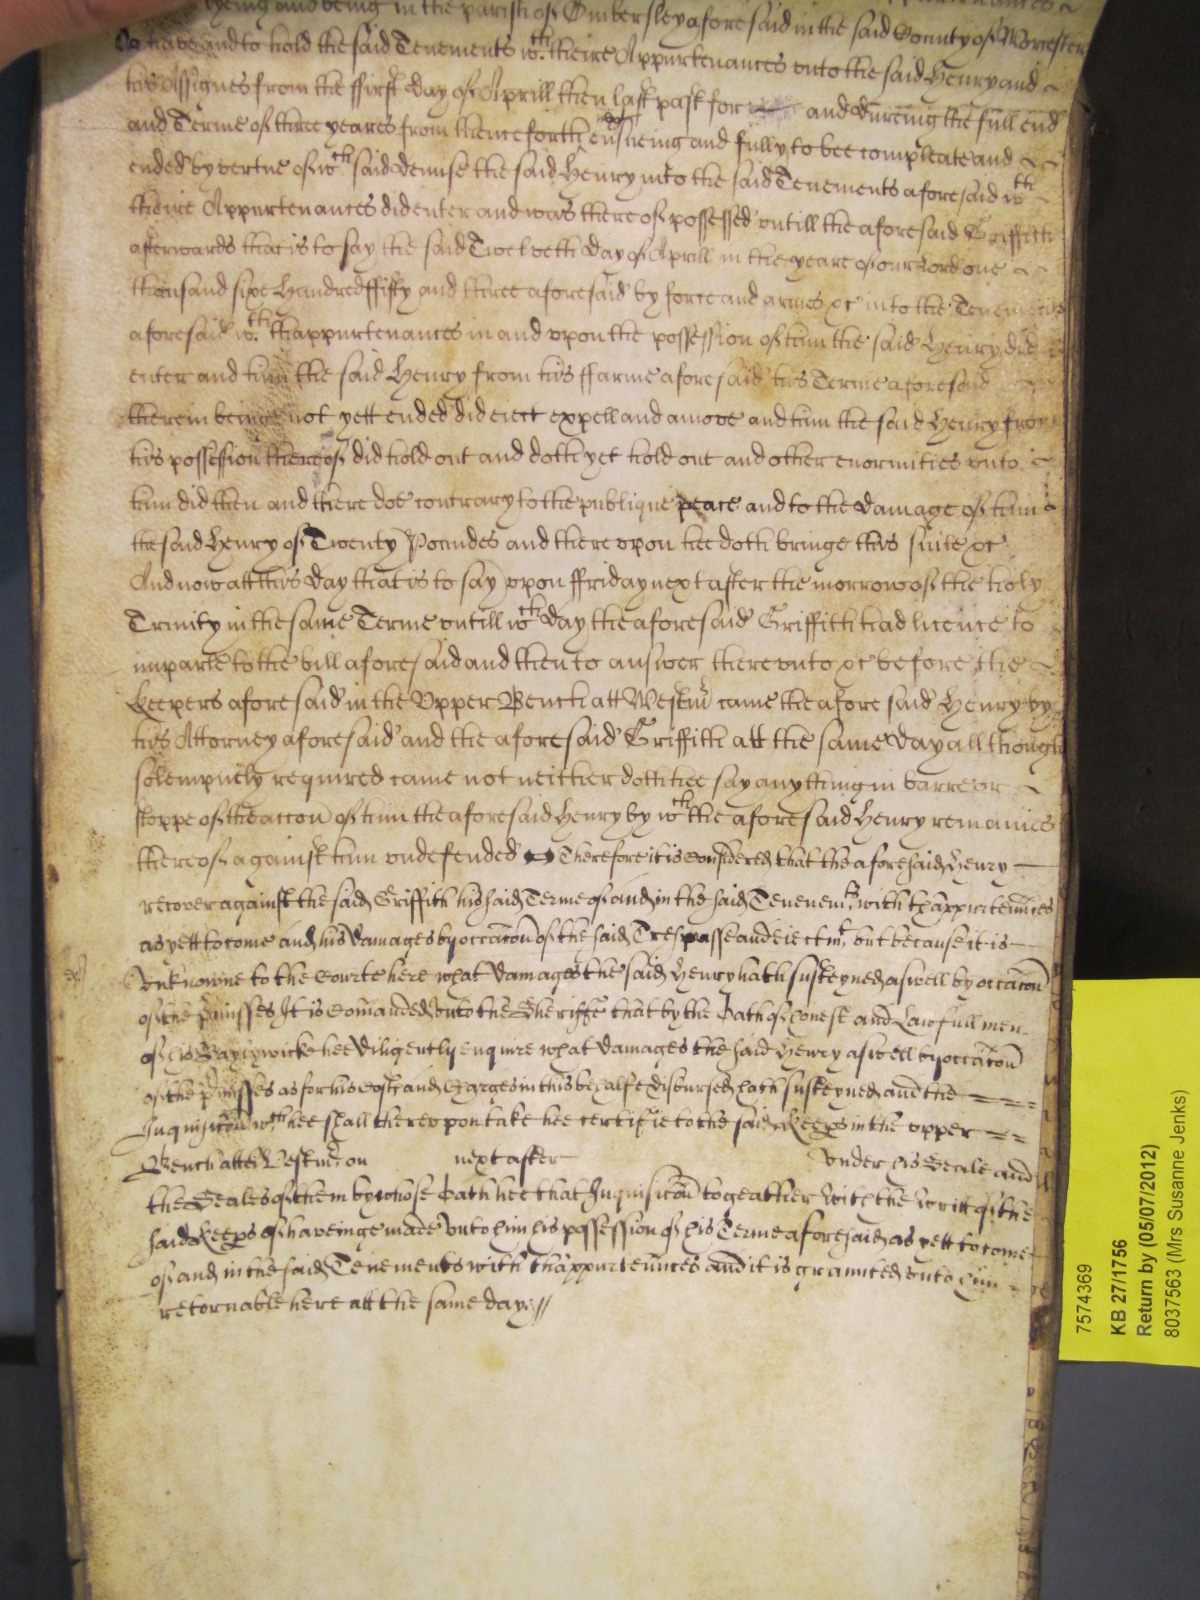 lyeing and being in the parish of Ombersley aforesaid in the said County of Worcester
To have and to hold the said Tenements wth. theire Appurtenances unto the said Henry and
his Assignes from the ffirst day of Aprill then last past for and dureing the full end
and Terme of three yeares from thence forth next ensueing and fully to bee compleate and
ended by vertue of wch said demise the said Henry into the said Tenements aforesaid wth
theire Appurtenances did enter and was thereof possessed untill the aforesaid Griffith
afterwards that is to say the said Twelveth day of Aprill in the yeare of our Lord one
thousand sixe hundred ffifty and three aforesaid by force and armes &c into the Tenements
aforesaid wth. thappurtenances in and upon the possession of him the said Henry did
enter and him the said Henry from his ffarme aforesaid his Terme aforesaid
therein being not yett ended did eiect expell and amove and him the said Henry from
his possession thereof did hold out and doth yet hold out and other enormities unto
him did then and there doe contrary to the publique peace and to the damage of him
the said Henry of Twenty Poundes and thereupon hee doth bringe this suite &c
And now att this day that is to say upon ffriday next after the morrow of the holy
Trinity in the same Terme untill wch day the aforesaid Griffith had licence to
imparle to the bill aforesaid and then to answer thereunto &c before the
keepers aforesaid in the Upper Bench att Westmr came the aforesaid Henry by
his Attorney aforesaid and the aforesaid Griffith att the same day all though
solempnely required came not neither doth hee say any thing in barre or
stoppe of the accon of him the aforesaid Henry by wch the aforesaid Henry remaines
thereof against him undefended Therefore it is considered that the aforesaid Henry
recover against the said Griffith his said Terme of and in the said Tenemts. with thappurtennces
as yett to come and his damages by occacon of the said Trespasse and eiectmt, but because it is
Unknowne to the Courte here what damages the said Henry hath susteyned aswell by occacon
of the pmisses It is Comanded unto the Sheriffe that by the Oath of honest and Lawfull men
of his Baylywicke hee diligently enquire what damages the said Henry aswell by occacon
of the pmisses as for his Costs and Charges in this behalfe disbursed hath susteyned and the
Inquisicon wch hee shall thereupon take hee certifie to the said Keeps in the upper
Bench att Westmr. on next after Under his Seale and
the Seales of them by whose Oath hee that Inquisicon togeather with the writt of the
said Keeps of haveinge made Unto him his possession of his Terme aforesaid as yett to come
of and in the said Tenements with thappurtennces and it is graunted unto him
retornable here att the same day://
7574369
KB 27/1756
Return by (05/07/2012)
8037563 (Mrs Susanne Jenks)